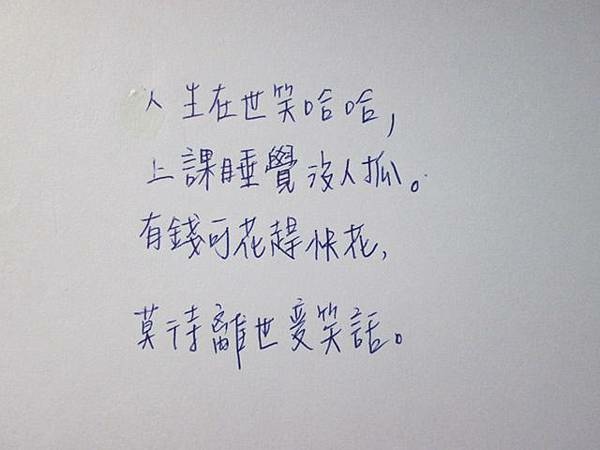 人生在世笑哈哈,
上課睡覺沒人抓。
有錢可花趕快花,
莫待離世變笑話。